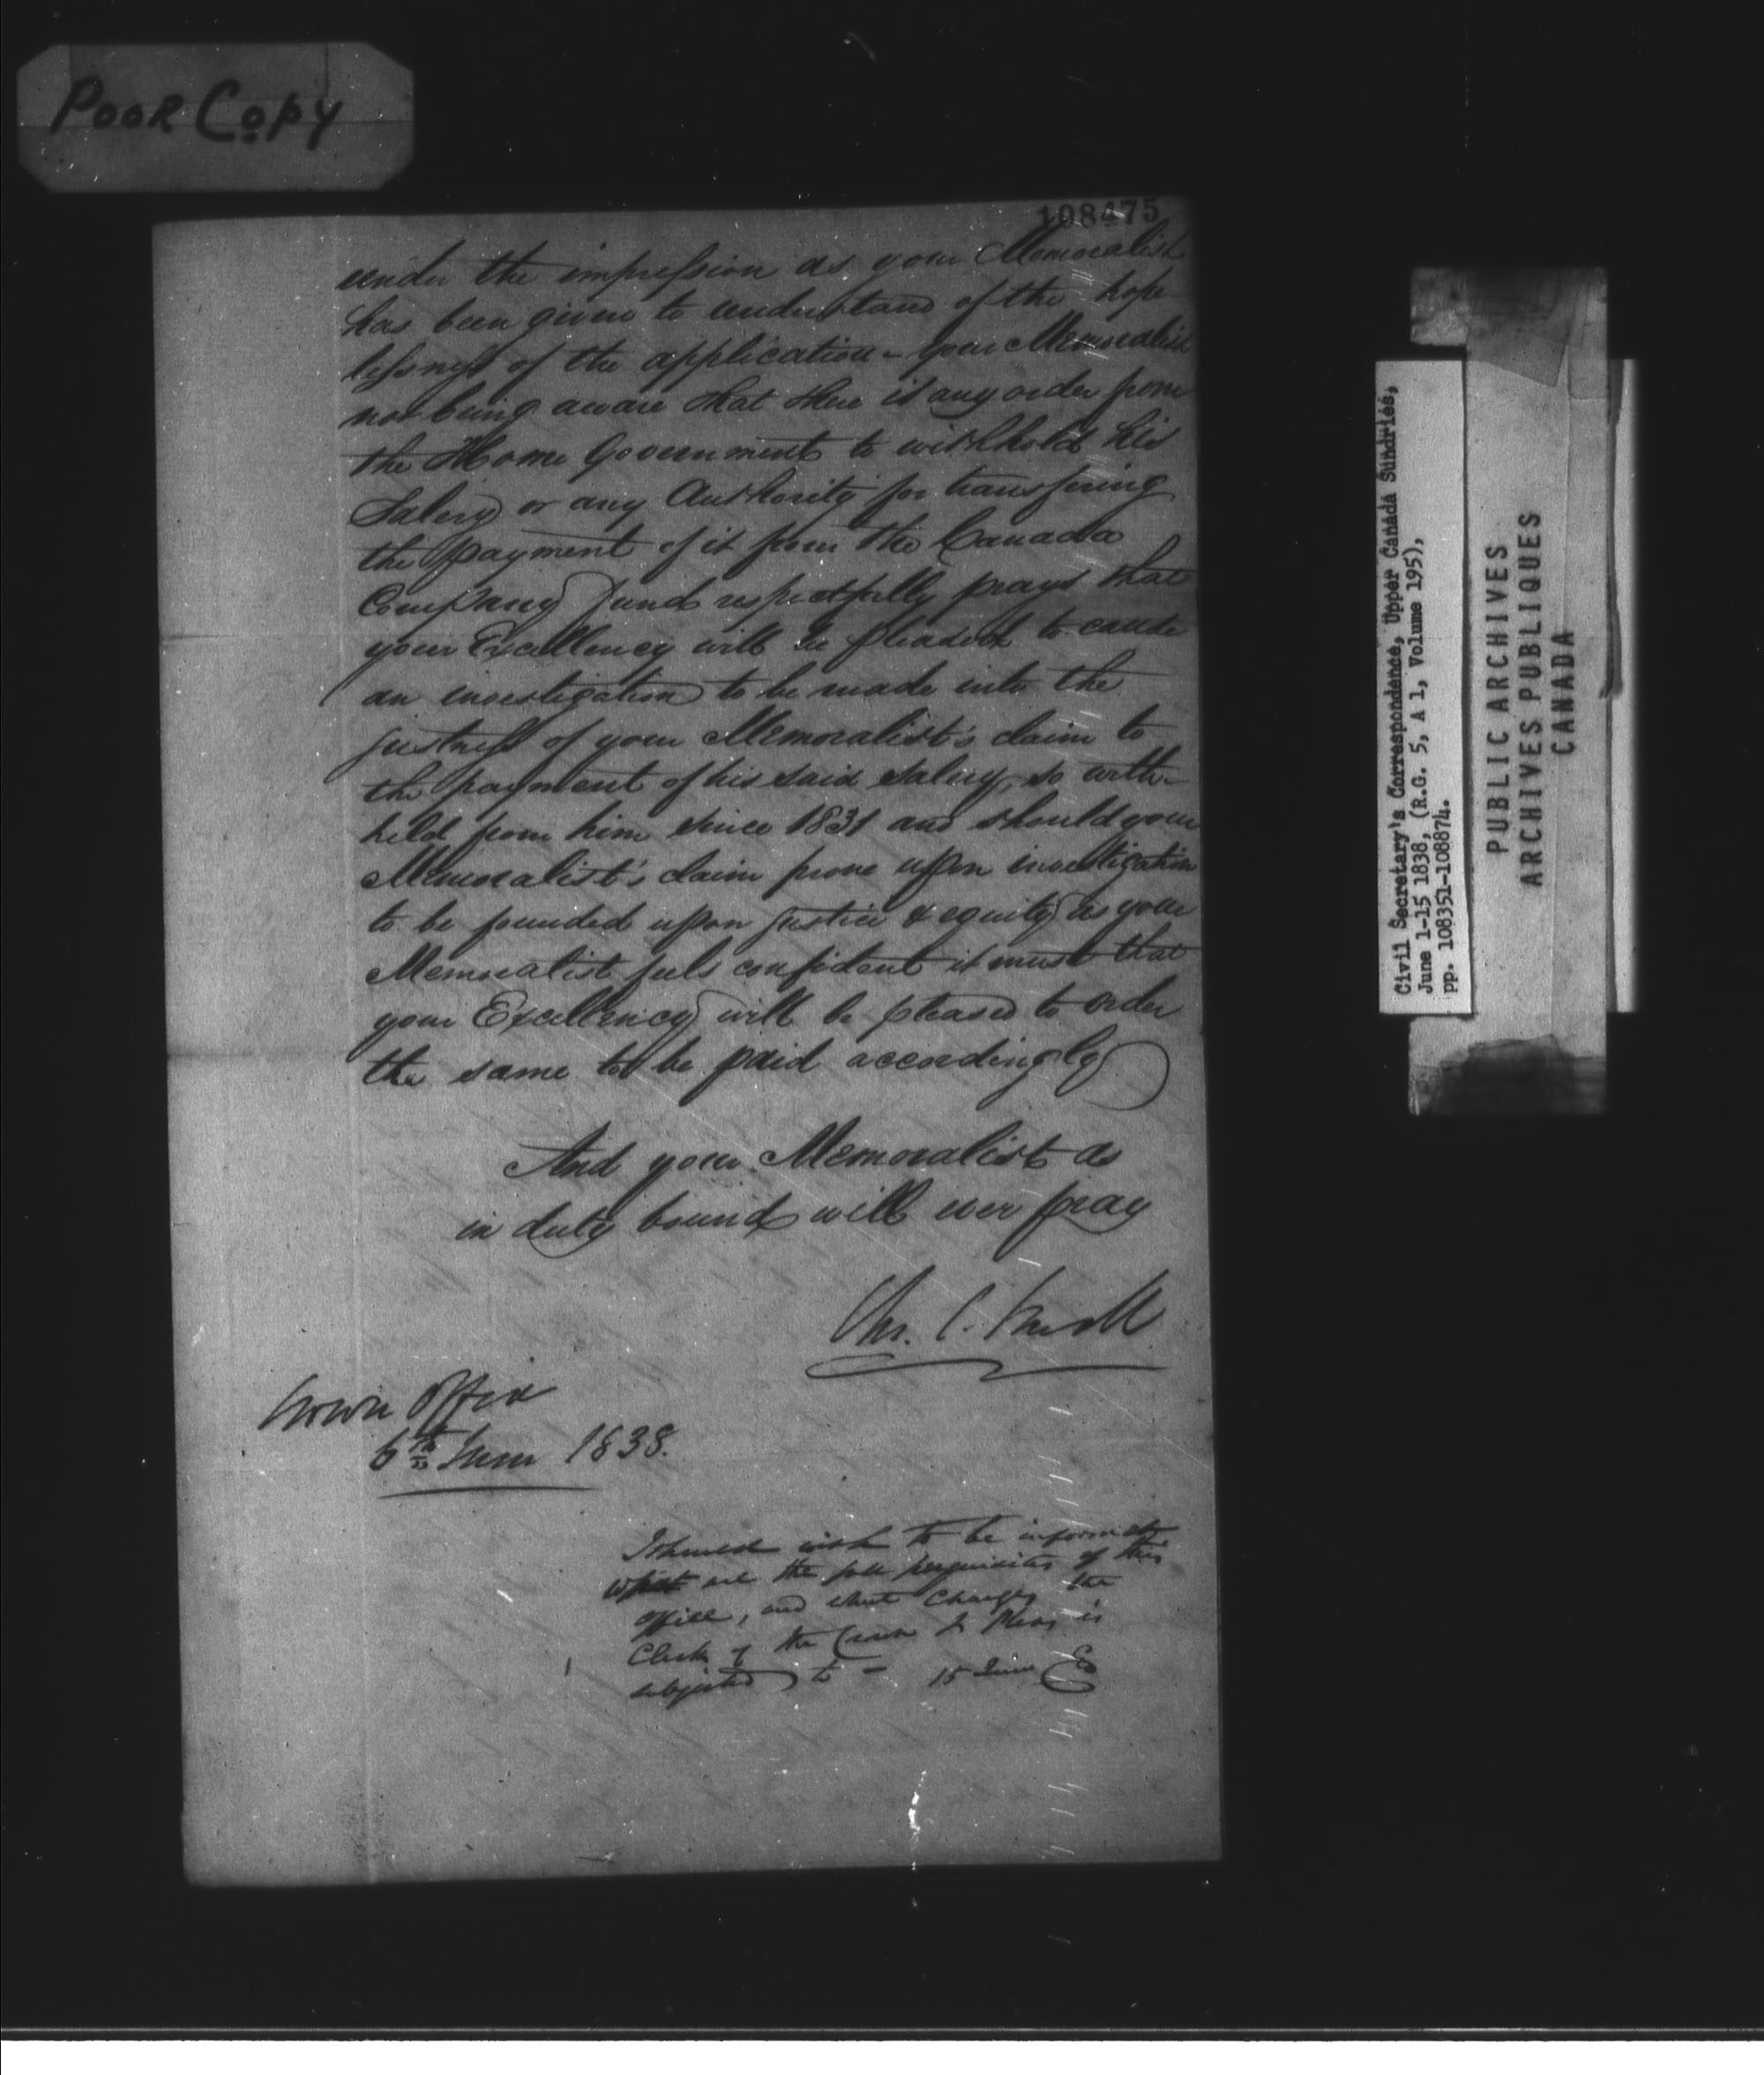 POOR COPY
108475
under the impression as your Memoralist
has been given to understand of the hope-
lessness of the application - your Memoralist
not being aware that there is any order from
the Home Government to withhold his
Salery or any Authority for transfering
the payment of it from the Canada
Company fund respectfully prays that
your Excellency will be pleased to cause
an investigation to be made into the
justness of your Memoralist's claim to
the payment of his said Salery, so with-
held from him since 1831 and should your
Memoralist's claim prove upon investigation
to be founded upon justice & equity as your
Memoralist feels confident it must that
your Excellency will be pleased to order
the same to be paid accordingly
And your Memoralist as
in duty bound will ever pray
Chs. C. Small
Crown Office
6th June 1838.
I should wish to be informed
what are the perquisites of this
office, and what Charges the
Clerk of the Crown & Pleas is
subjected to - 15 June
Civil Secretary's Correspondence, Upper Canada Sundries,
June 1-15 1838, (R.G. 5, A 1, Volume 195),
pp. 108351-108874.
PUBLIC ARCHIVES
ARCHIVES PUBLIQUES
CANADA